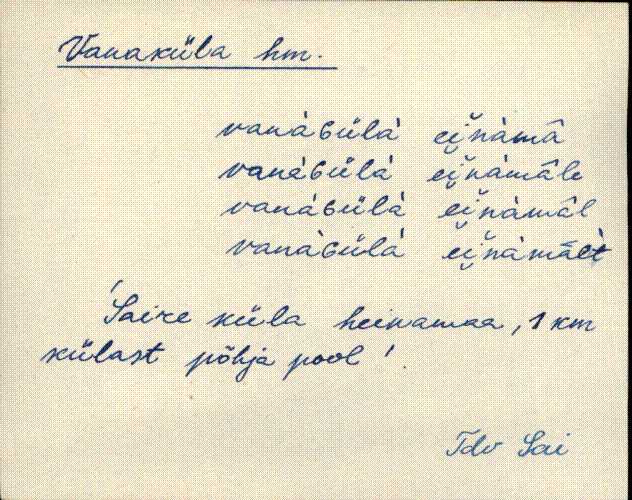 Vanaküla hm.
vanàGülà ei̬žnàmâ
vanàGülà ei̬žnàmâle
vanàGülà ei̬žnàmâl
vanàGülà ei̬žnàmâlt
'Saire küla heinamaa, 1 km
külast põhja pool'
Tdv Sai